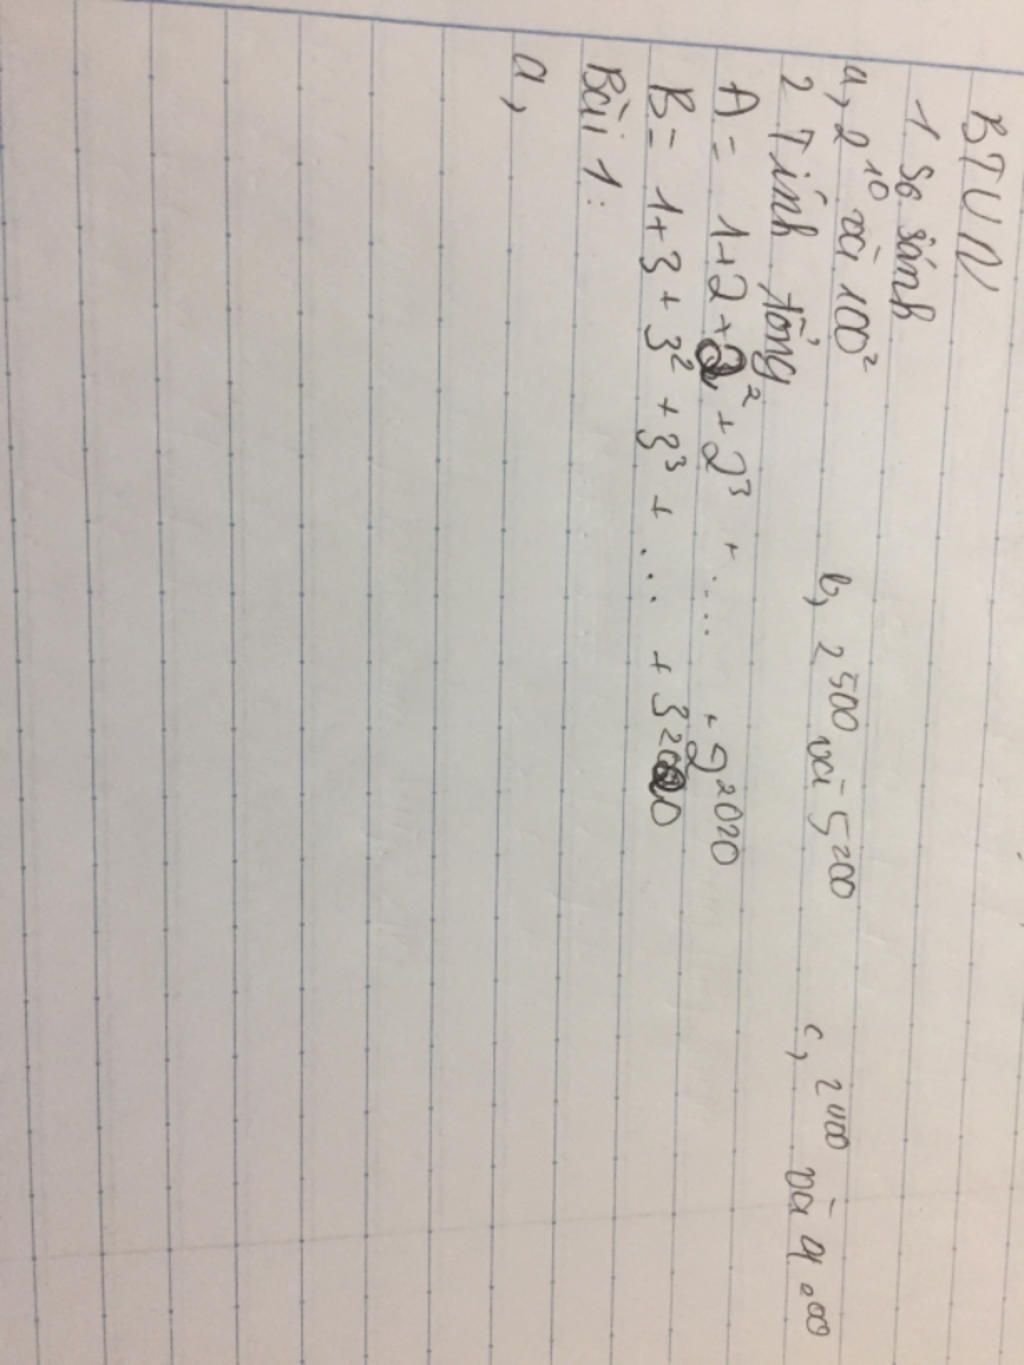 BTVN
1 So sánh
a, 2¹⁰ và 100² b, 2⁵⁰⁰ và 5²⁰⁰ c, 2⁴⁰⁰ và 4
2 Tính tổng
A = 1+2+2² + 2³ + .... + 2²⁰²⁰
B = 1+3+3² + 3³ + ... + 3
Bài 1:
a,